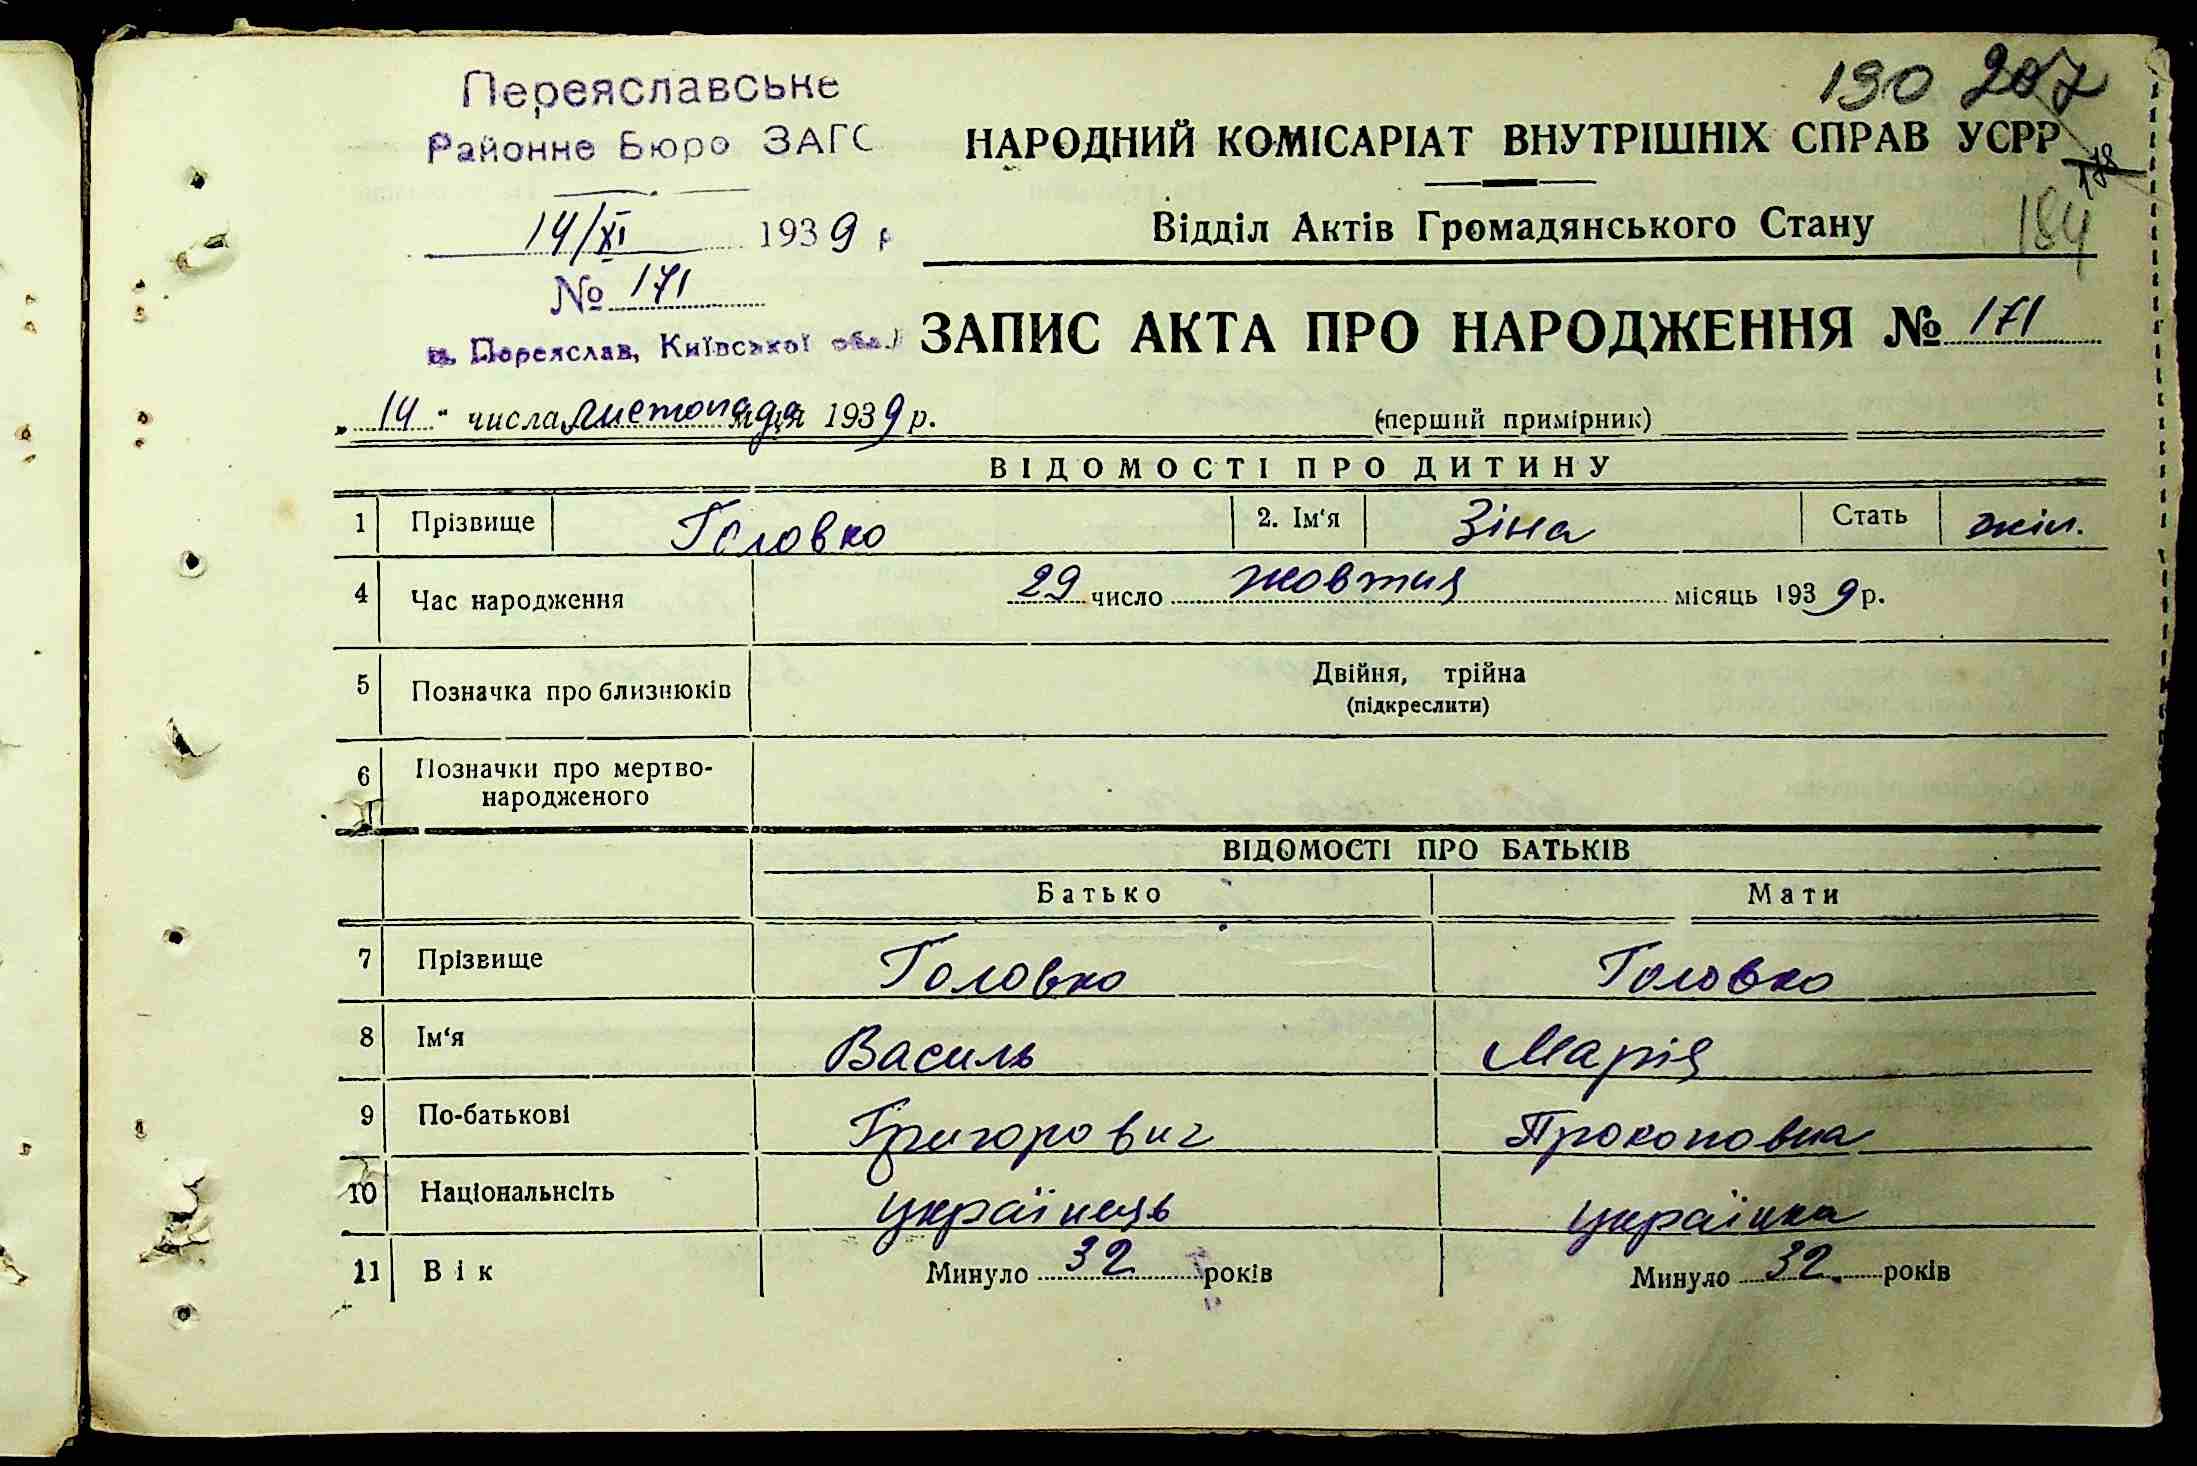 Переяславське
Районне Бюро ЗАГС
14/XI 1939 р
№ 171
м. Переяслав, Київської обл.
190 207
178
184
НАРОДНИЙ КОМІСАРІАТ ВНУТРІШНІХ СПРАВ УСРР
Відділ Актів Громадянського Стану
ЗАПИС АКТА ПРО НАРОДЖЕННЯ № 171
„14“ числа листопада м-ця 1939 р.
(перший примірник)
ВІДОМОСТІ ПРО ДИТИНУ
1 Прізвище Головко 2. Ім'я Зіна Стать жін.
4 Час народження 29 число жовтня місяць 1939 р.
5 Позначка про близнюків Двійня, трійна
(підкреслити)
6 Позначки про мертво-
народженого
ВІДОМОСТІ ПРО БАТЬКІВ
Батько Мати
7 Прізвище Головко Головко
8 Ім‘я Василь Марія
9 По-батькові Григорович Прокоповна
10 Національнсіть українець українка
11 Вік Минуло 32 років Минуло 32. років